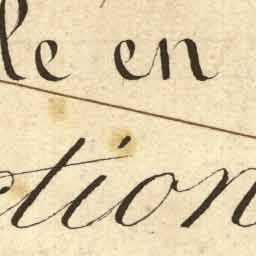 le en
ction